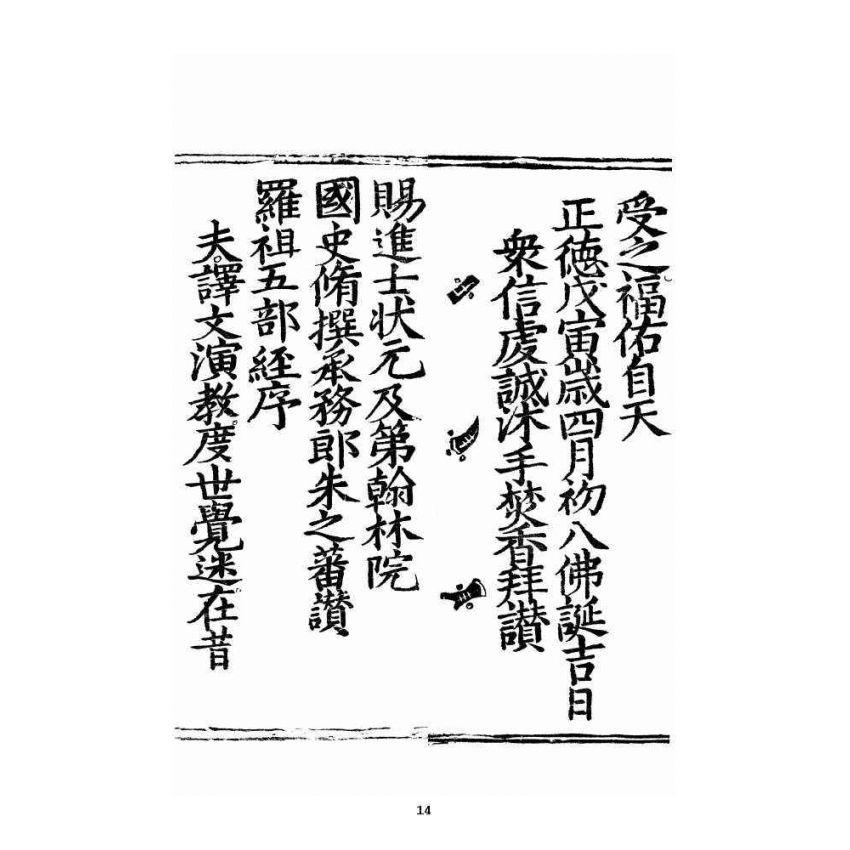 受之福佑自天
正德戊寅歲四月初八佛誕吉日
衆信虔誠沐手焚香拜讃
賜進士狀元及第翰林院
國史脩撰承務郎朱之蕃讃
羅祖五部経序
夫譯文演教度世覺迷在昔
14